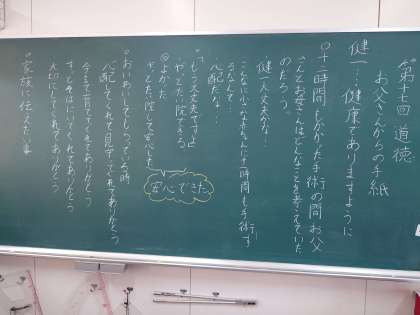 第十七回 道徳
お父さんからの手紙
健一…健康でありますように
○十二時間もかかった手術の間お父
さんとお母さんはどんなことを考えていた
のだろう。
健一大丈夫かな…
こんなに小さな赤ちゃんに十時間も手術す
るなんて…
心配だな…
「もう大丈夫ですよ」
・やっとたい院できる
よかった
やっとたい院して安心した
安心できた
心配してくれて見守ってくれてありがとう
今まで育ててくれてありがとう
ずっとそばにいてくれてありがとう
大切にしてくれてありがとう
○家族に伝えたい事